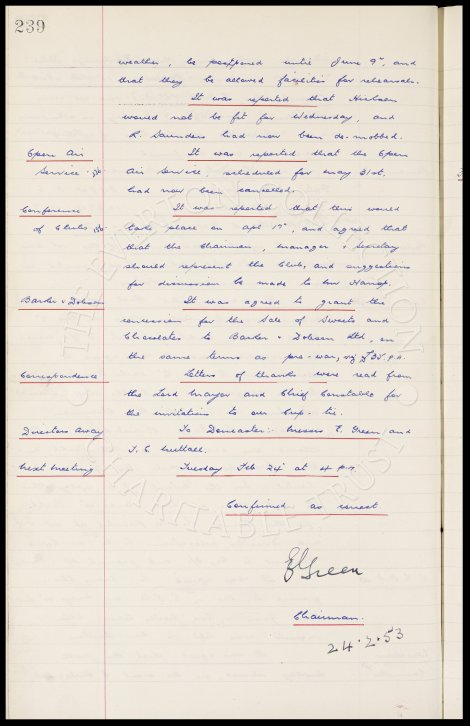 239
weather, be postponed until June 9th, and
that they be allowed facilities for rehearsals.
It was reported that
would not be fit for Wednesday, and
R. Saunders had now been de-mobbed.
Open Air It was reported that the Open
Service Air Service, scheduled for May 31st.
had now been cancelled.
Conference It was reported that this would
of Clubs take place on Apl 17th, and agreed that
that the Chairman, Manager & Secretary
should represent the Club, and suggestions
for discussion be made to
Barker & Dobson It was agreed to grant the
concession for the Sale of Sweets and
Chocolates to Barker & Dobson Ltd, on
the same terms as pre-war, viz p.a.
Correspondence Letters of thanks were read from
the Lord Mayor and Chief Constable for
the invitations to our Cup-tie.
Directors Away To Doncaster:- Messrs E. Green and
T. C. Nuttall.
Next Meeting Tuesday Feb 24th at 4 p.m.
Confirmed as correct
E Green
Chairman.
24.2.53
THE EVERTON COLLECTION
CHARITABLE TRUST